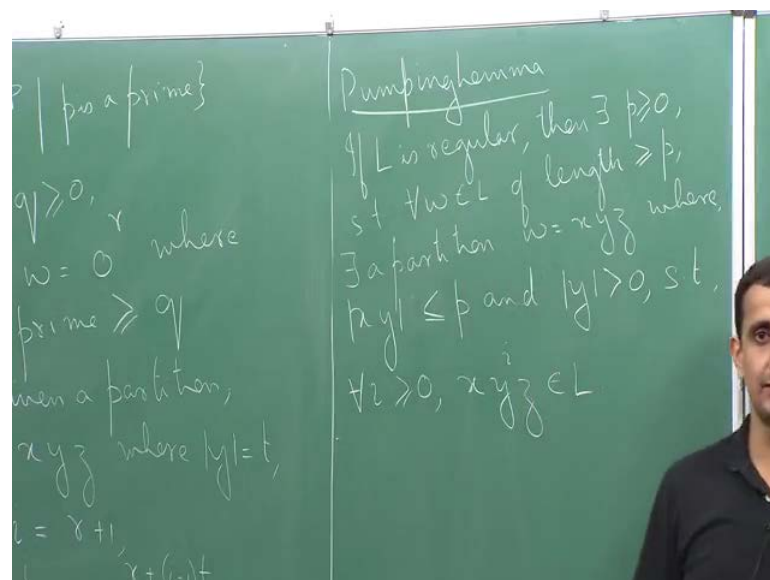 P | p is a prime}
q ≥ 0,
w = 0^r where
prime ≥ q
a partition,
xyz where |y| = t,
= r+1,
r+(i-1)t
Pumping Lemma
If L is regular, then ∃ p ≥ 0,
s.t ∀ w ∈ L of length ≥ p,
∃ a partition w = xyz where,
|xy| ≤ p and |y| > 0, s.t,
∀ i ≥ 0, xy^i z ∈ L